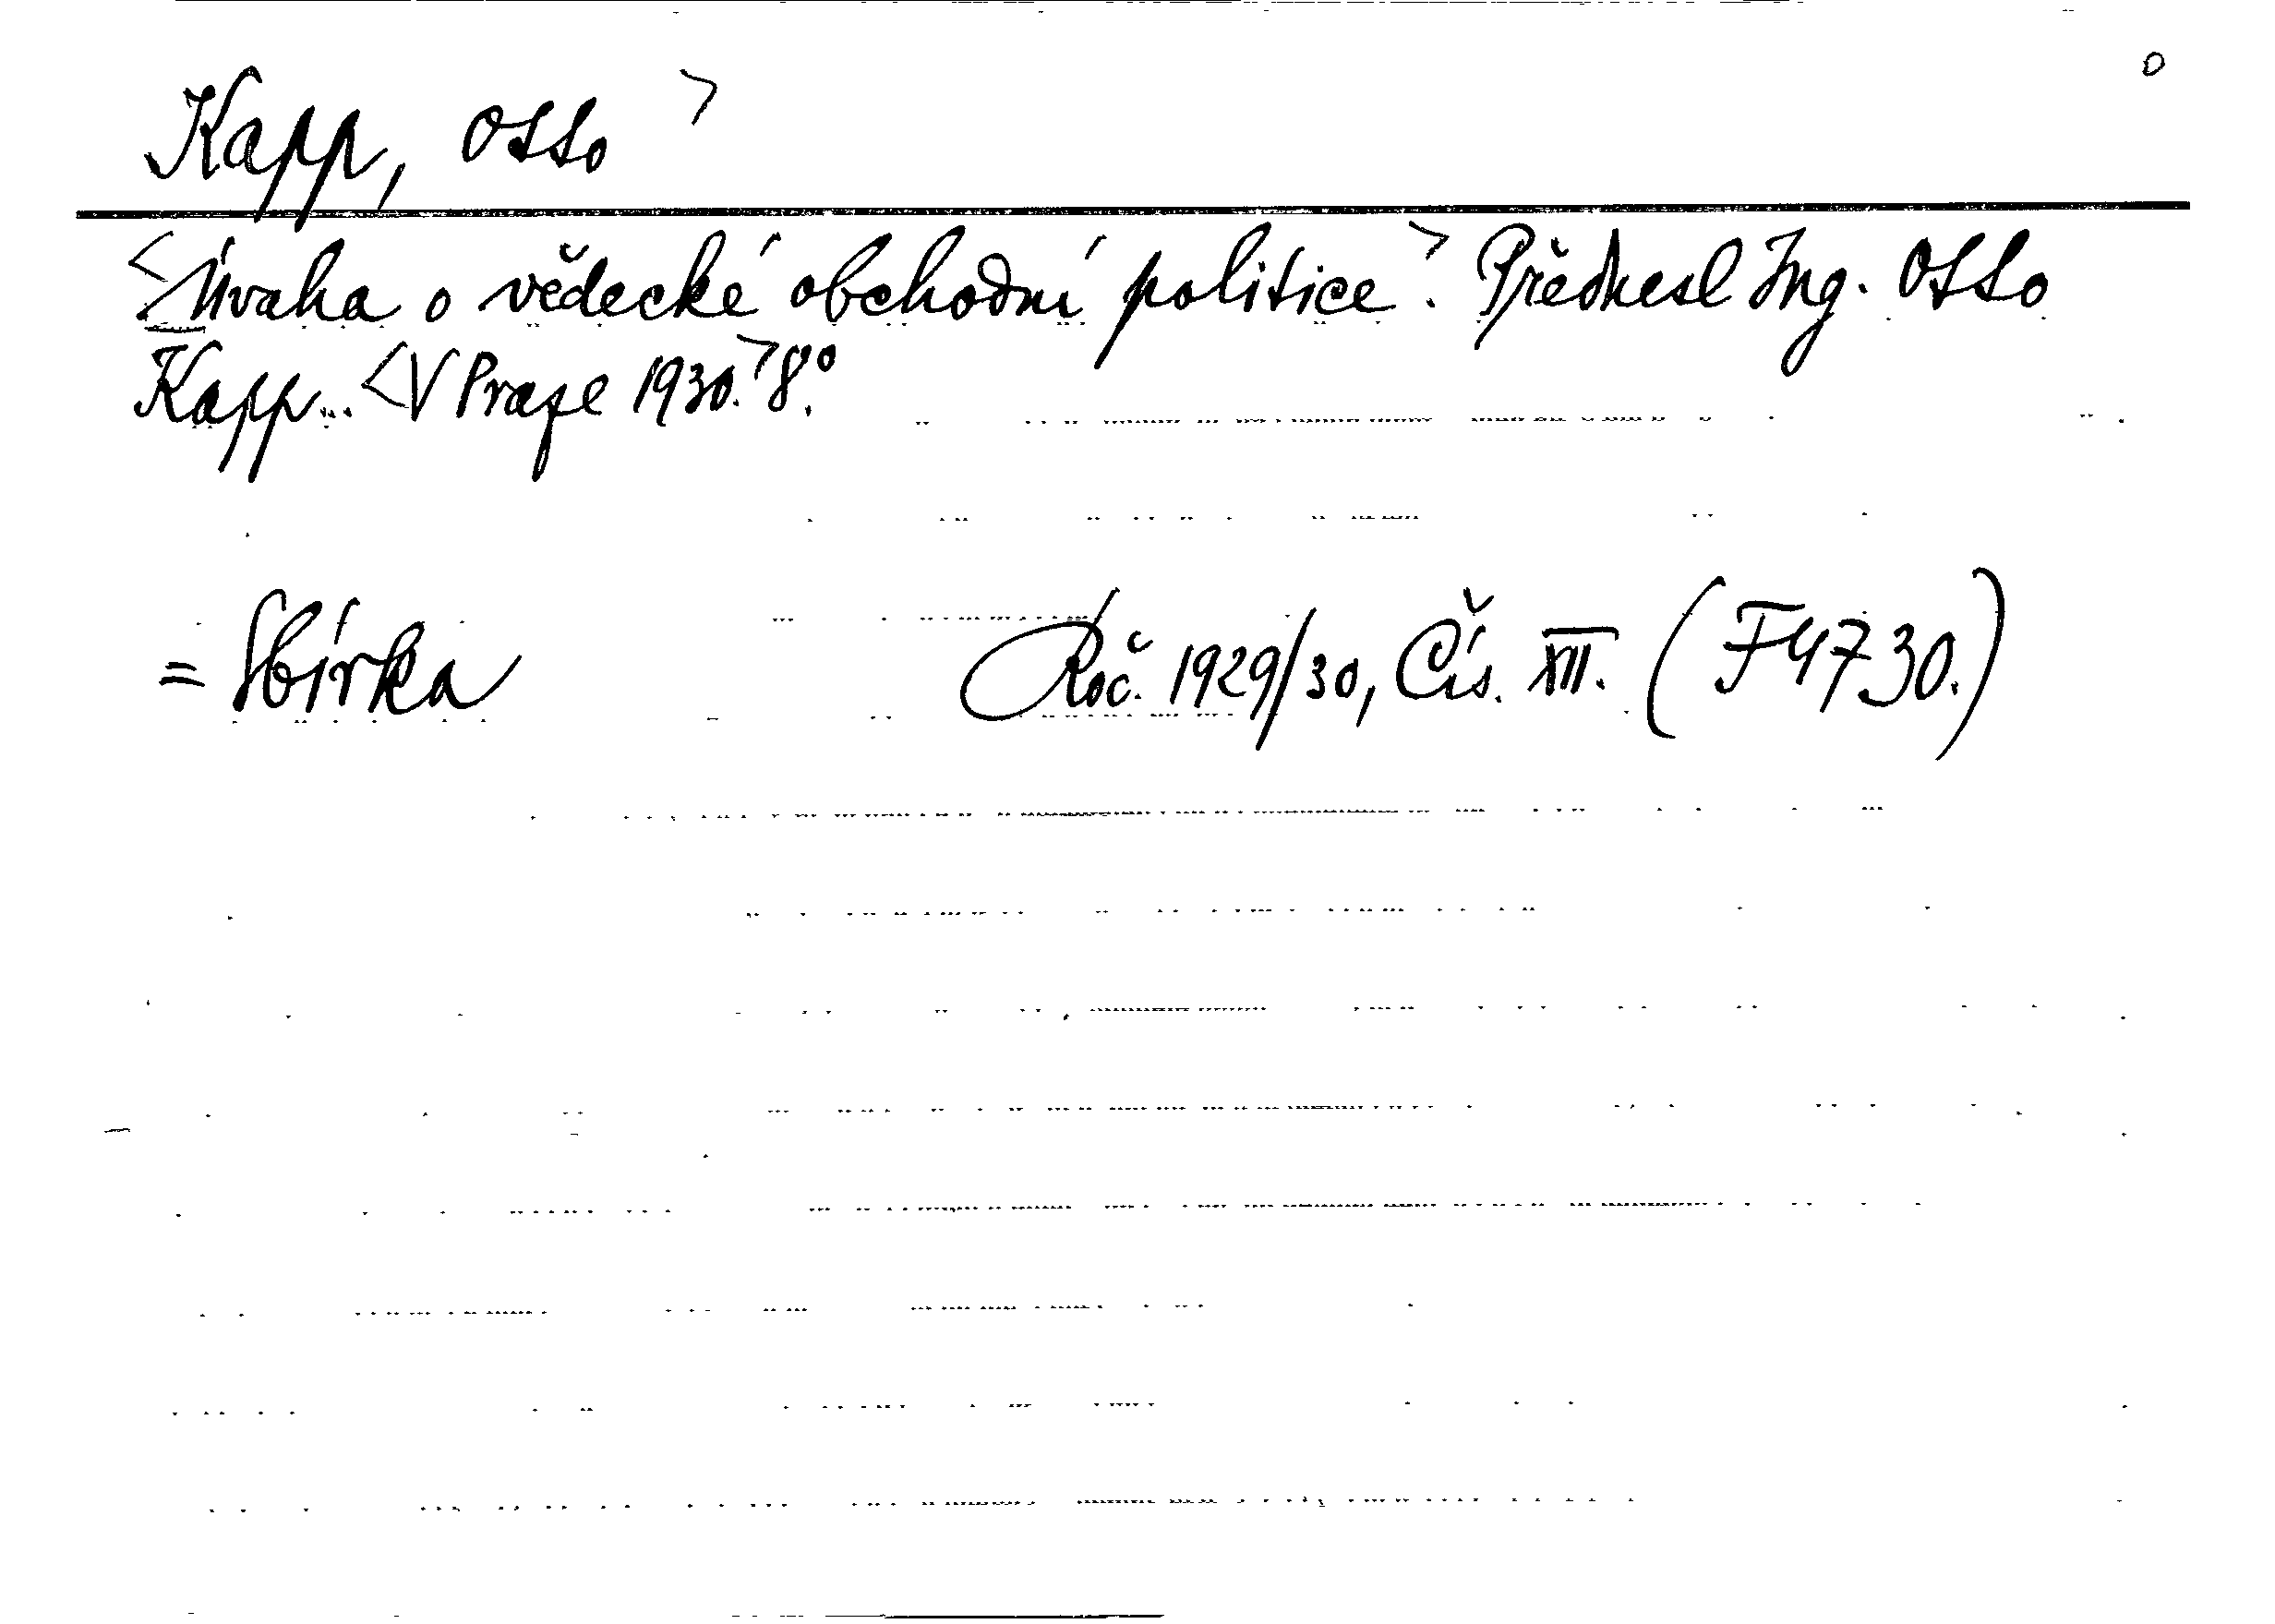 o
Kapp, Otto >
<Úvaha o vědecké obchodní politice.> Přednesl Ing. Otto
Kapp... <V Praze 1930.> 8°.
= Sbírka Roč. 1929/30, Čís. XII. (F4730.)